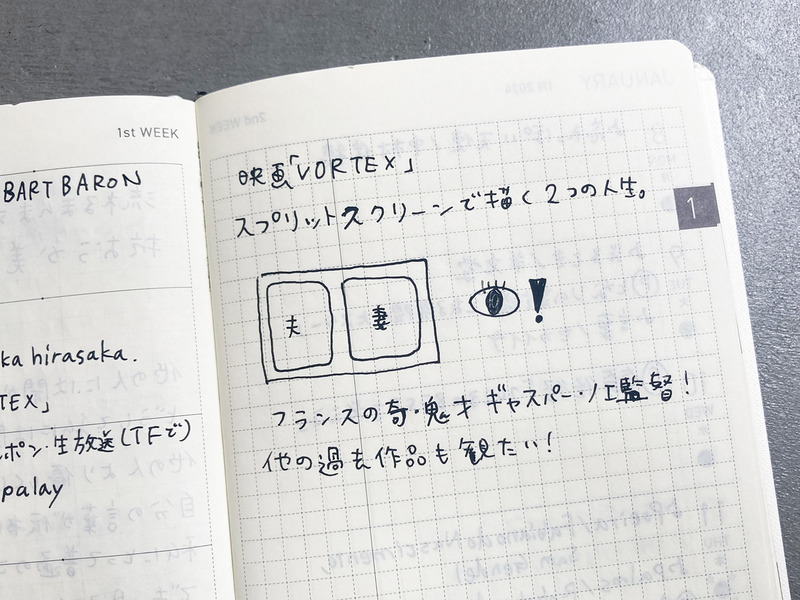 1st WEEK
BART BARON
ka hirasaka.
TEX」
ポン・生放送(TFで)
palay
JANUARY
2nd WEEK
映画「VORTEX」
スプリットスクリーンで描く2つの人生。
1
夫 妻
!
フランスの奇・鬼才ギャスパー・ノエ監督!
他の過去作品も観たい!